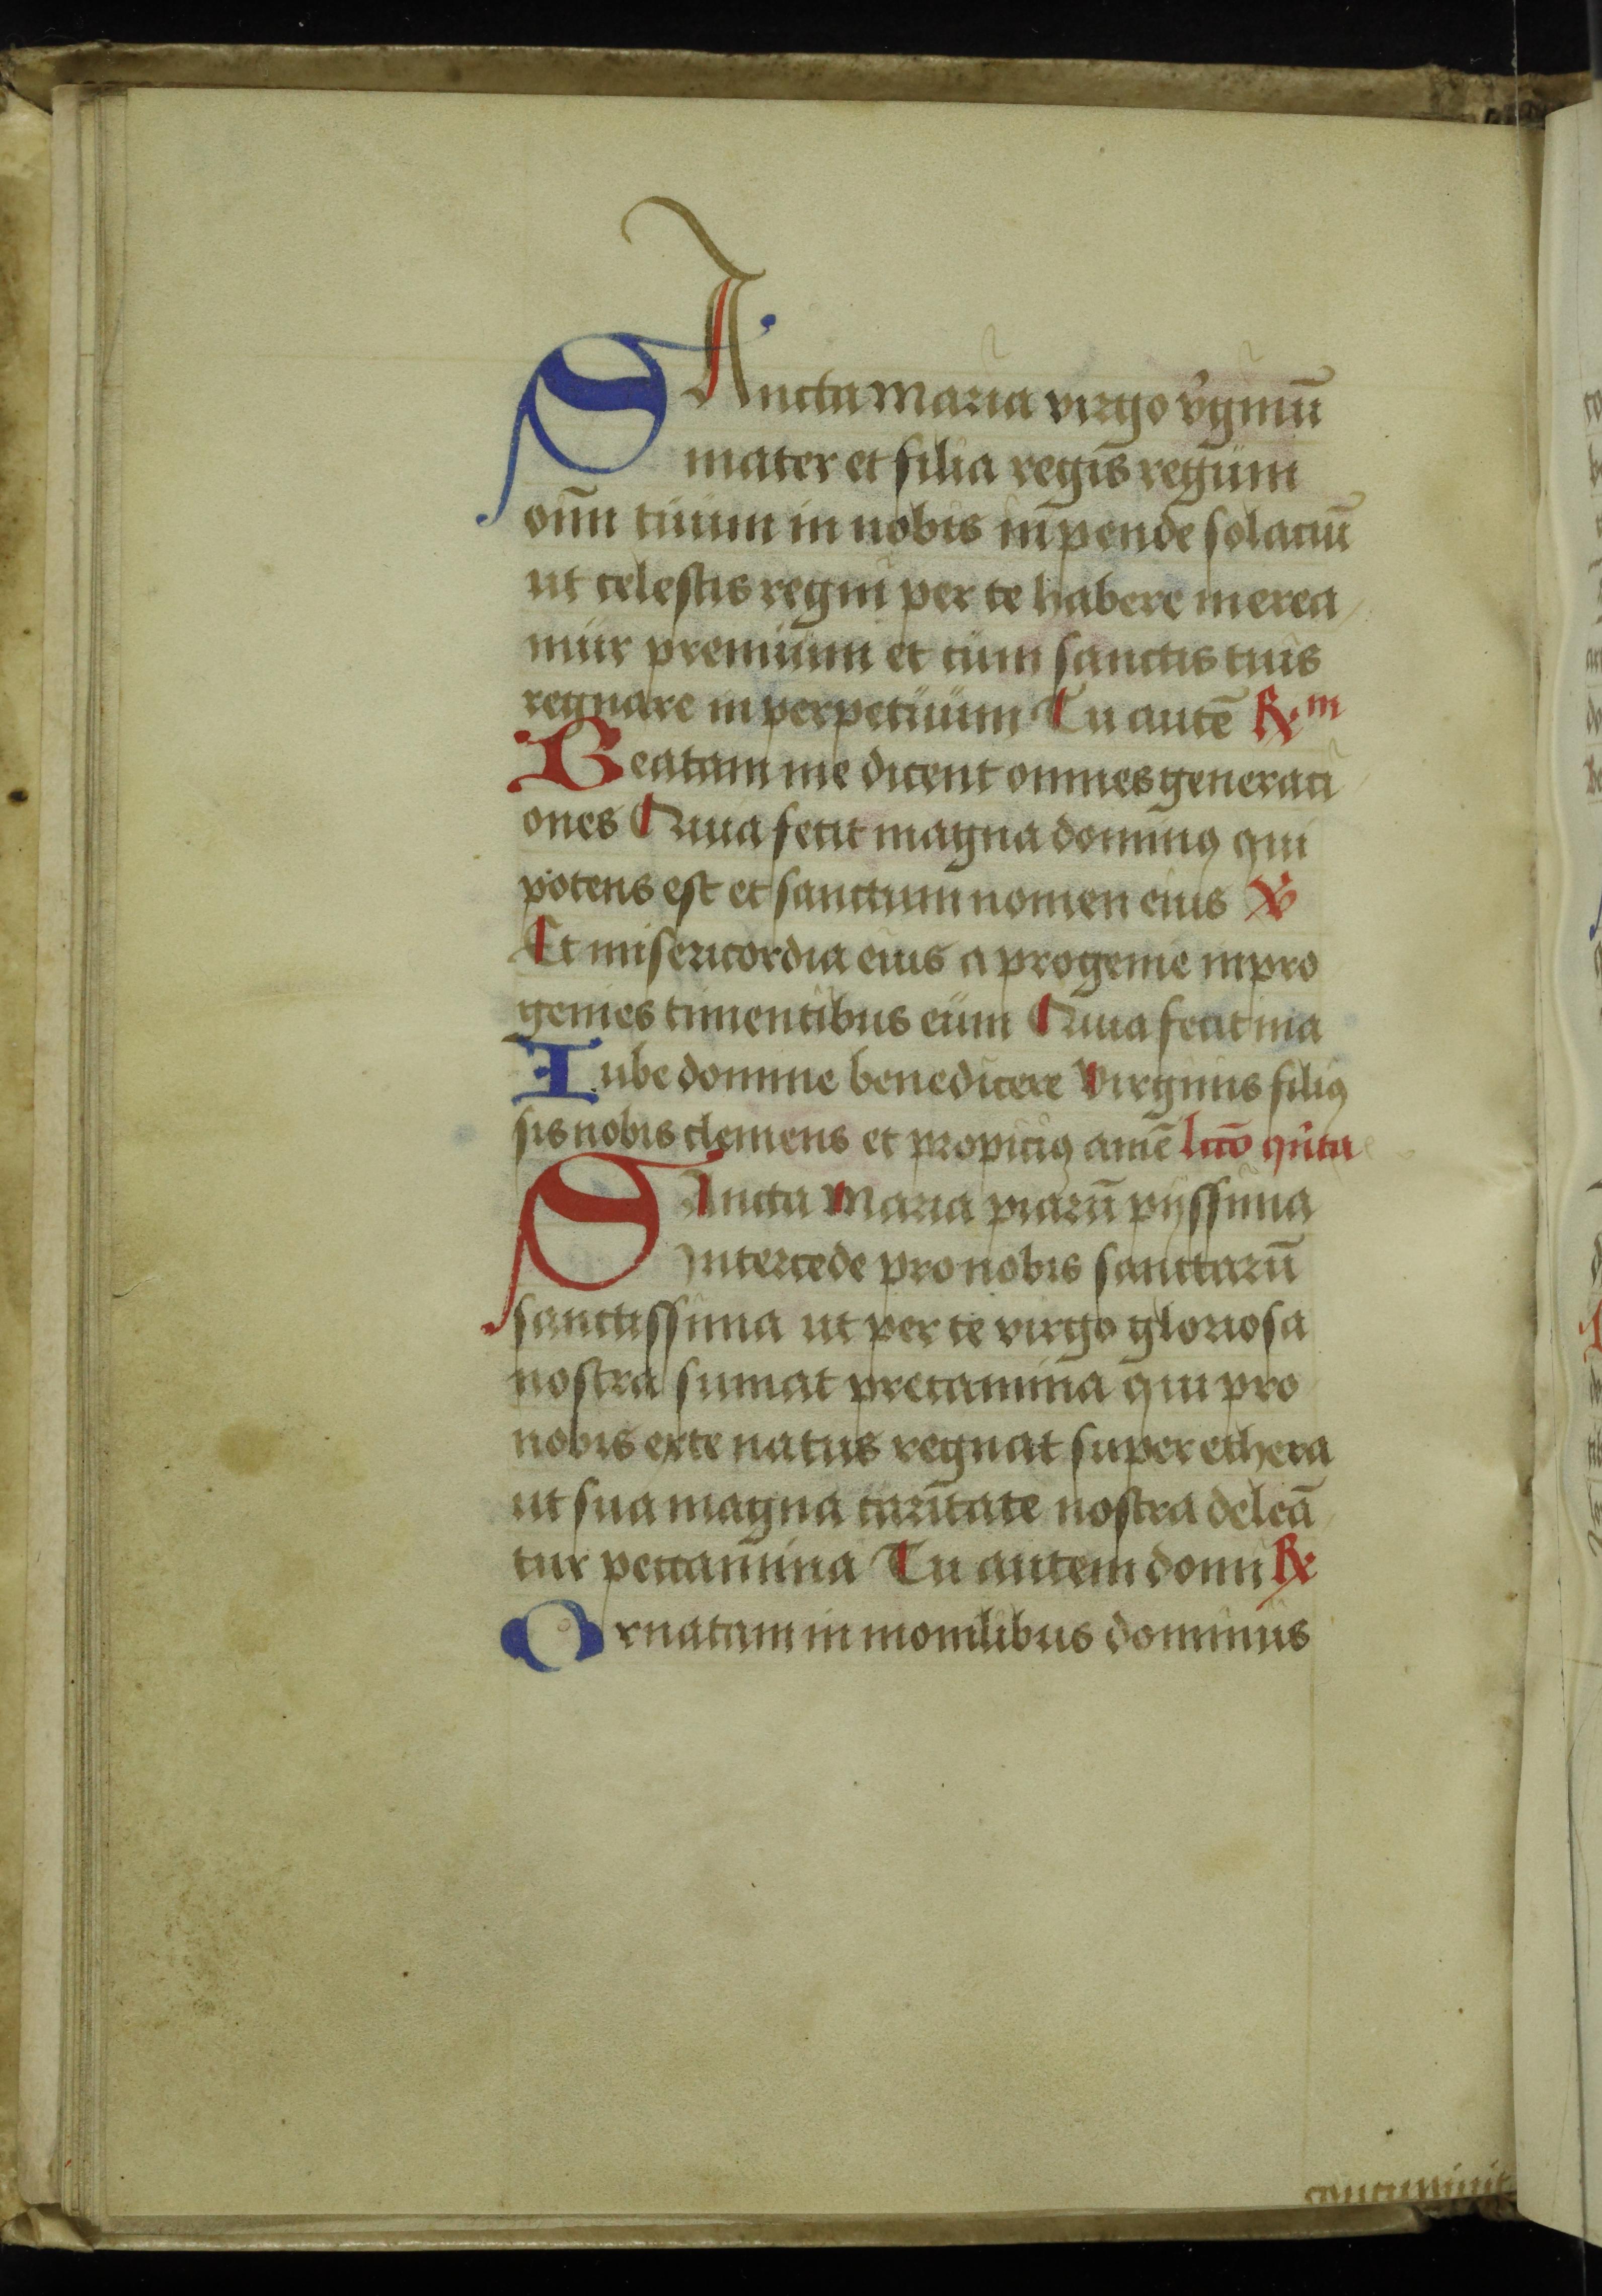 SAncta Maria virgo v̄ginū
mater et filia regis regum
oīm tuum in nobis inpende solaciū
ut celestis regni per te habere merea
mur premium et cum sanctis tuis
regnare in perpetuum Tu autē ℟ m
Beatam me dicent omnes generaci
ones Quia fecit magna dominꝰ qui
potens est et sanctum nomen eius ℣
Et misericordia eius a progenie in pro
genies timentibus eum Quia fecit ma
Iube domine benedicere Virginis filiꝰ
sis nobis clemens et propiciꝰ amē lc̄o q̄nta
SAncta Maria piarū pijssima
Intercede pro nobis sanctarū
sanctissima ut per te virgo gloriosa
nostra sumat precamina qui pro
nobis ex te natus regnat super ethera
ut sua magna caritate nostra deleā
tur peccamina Tu autem domi ℟
Ornatam in monilibus dominus